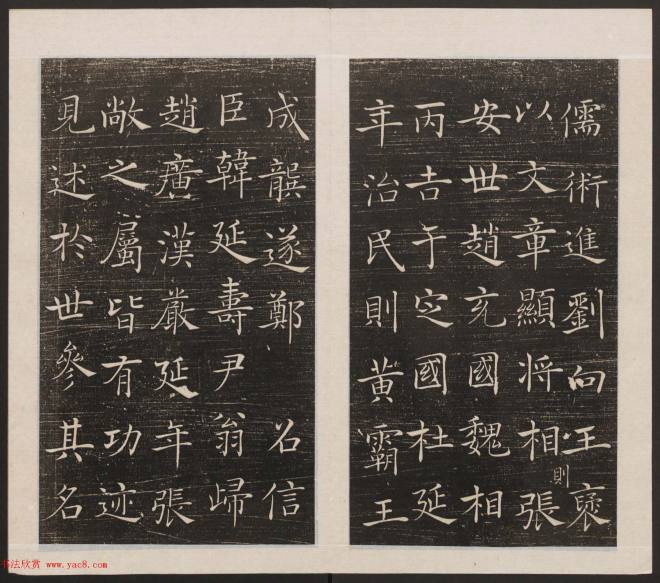 儒術進劉向王襃
以文章顯將相張
則
安世趙充國魏相
丙吉于定國杜延
年治民則黃霸王
成龔遂鄭 召信
臣韓延壽尹翁歸
趙廣漢嚴延年張
敞之屬皆有功迹
見述於世參其名
书法欣赏 www.yac8.com